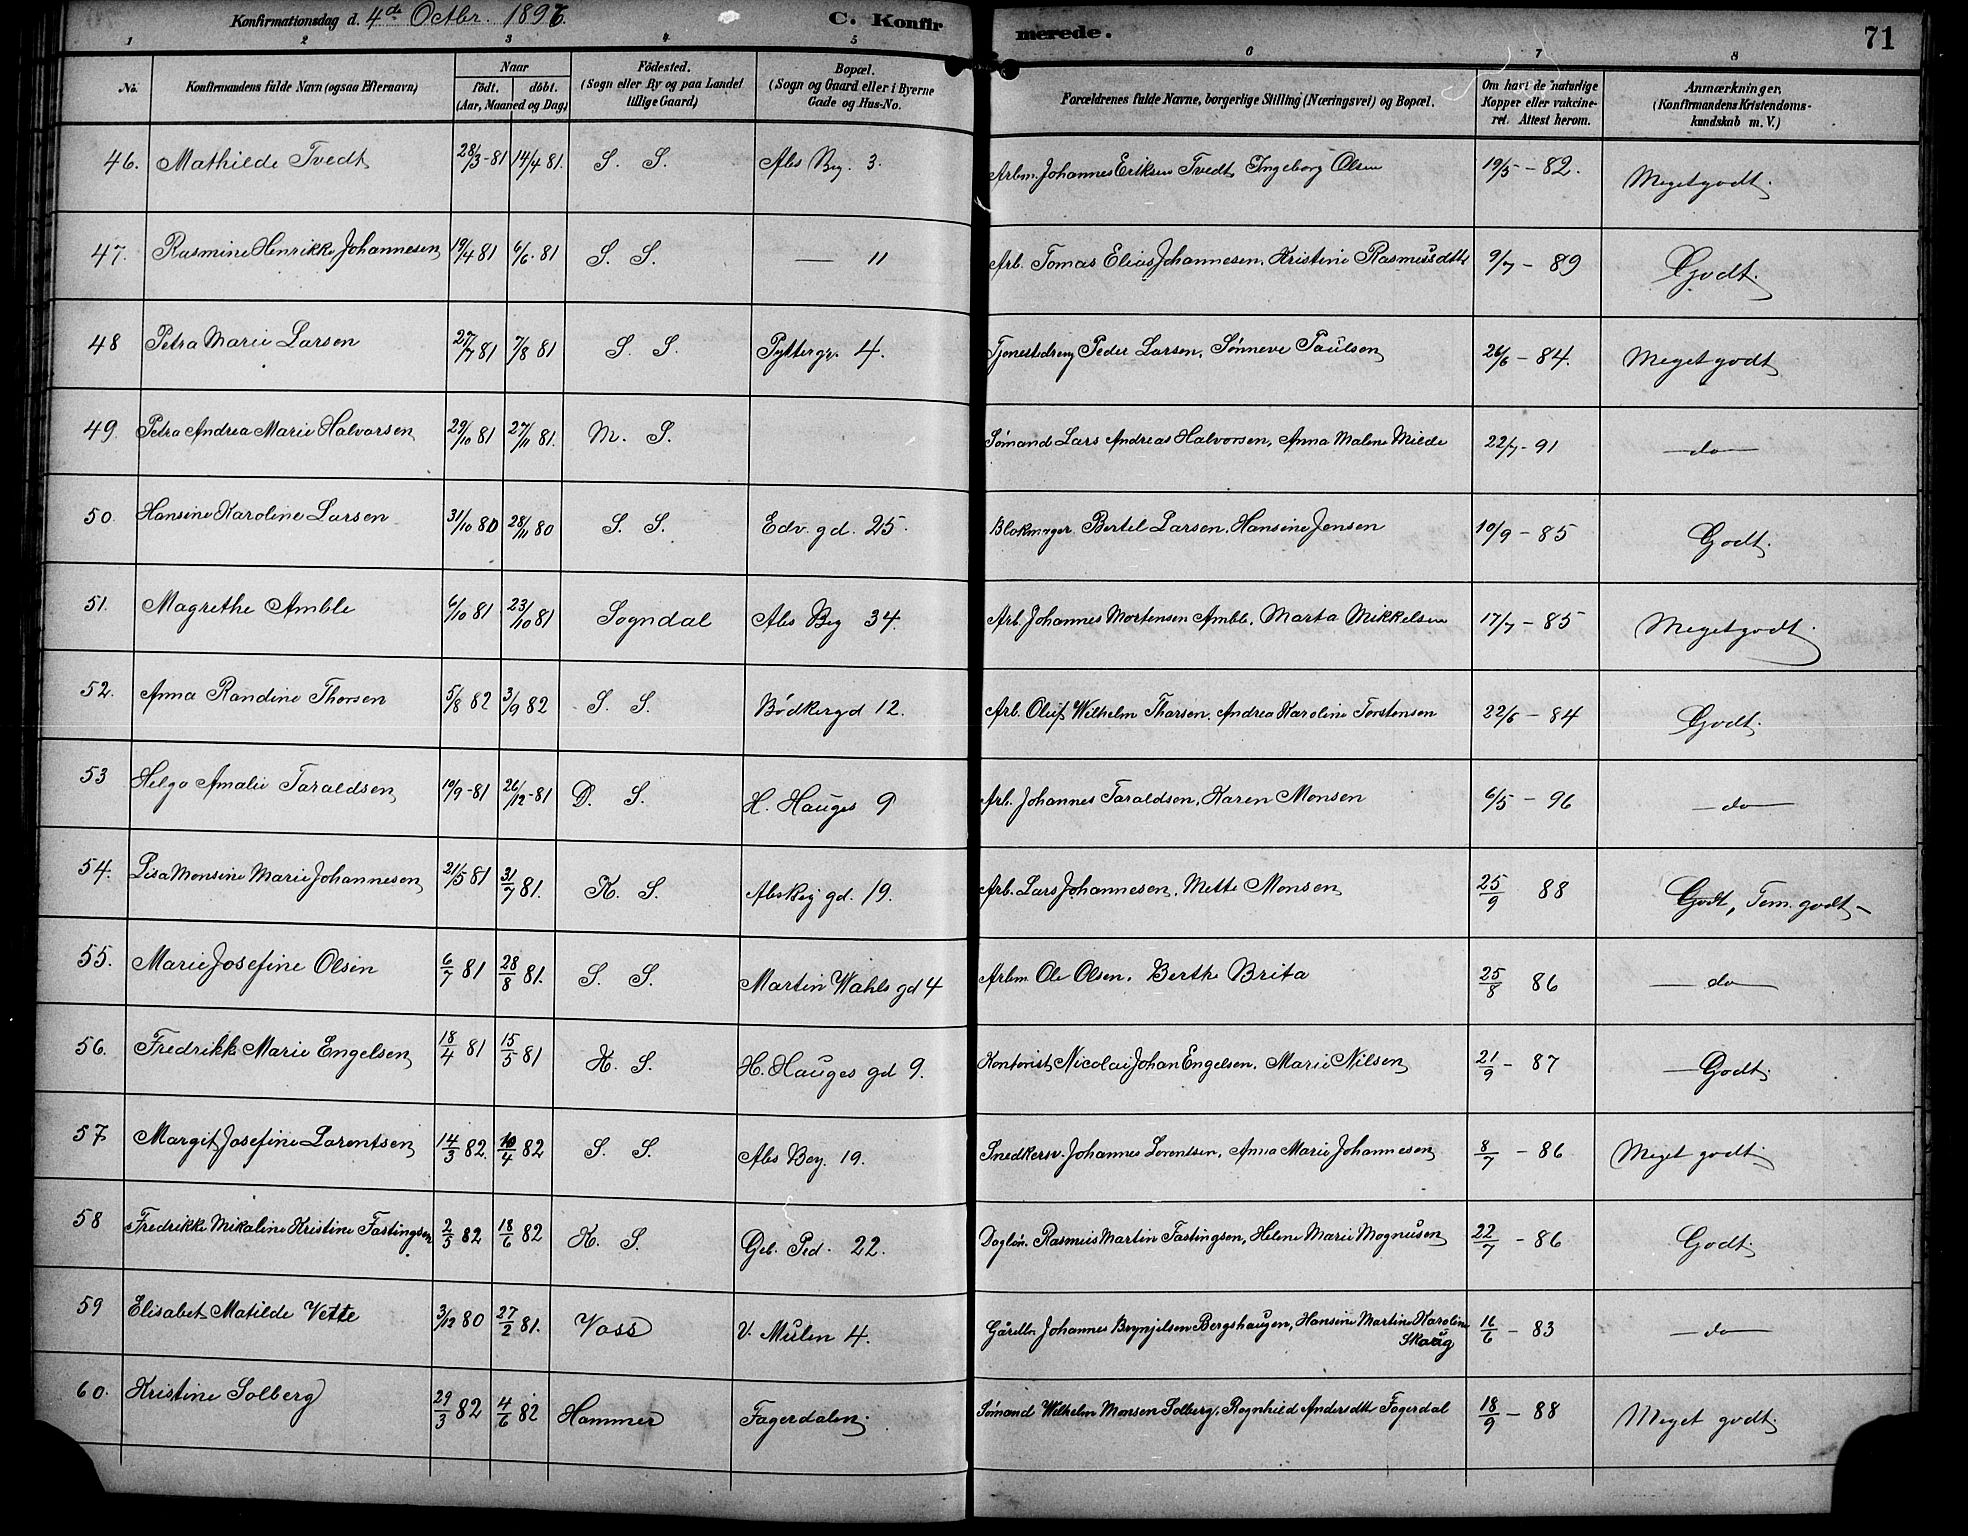 Konfirmationsdag d. 4de Octbr. 1896. C. Konfirmerede. 71
1 2 3 4 5 6 7 8
No. Konfirmandens fulde Navn (ogsaa Efternavn) Naar født. døbt. (Aar, Maaned og Dag) Fødested. (Sogn eller By og paa Landet tillige Gaard) Bopæl. (Sogn og Gaard eller i Byerne Gade og Hus-No. Forældrenes fulde Navne, borgerlige Stilling (Næringsvei) og Bopæl. Om havt de naturlige Kopper eller vakcineret. Attest herom. Anmærkninger. (Konfirmandens Kristendomskundskab m. V.)
46. Mathilde Tvedt 28/3-81 14/4 81. S. S. Abs Bg. 3. Arbm. Johannes Eriksen Tvedt, Ingeborg Olsen 19/5 - 82. Meget godt.
47. Rasmine Henrikke Johannesen 19/4 81 6/6. 81 S. S. — 11 Arb. Tomas Elias Johannesen, Kristine Rasmusdtr 9/7 - 89 Godt.
48 Petra Marie Larsen 27/7 81 7/8 81 S. S. Pyttergr. 4. Tjenestdreng Peder Larsen, Sønneve Paulsen 26/6 - 84. Meget godt
49. Petra Andrea Marie Halvorsen 29/10 81 27/11 81. M. S. Sømand Lars Andreas Halvorsen, Anna Malene Milde 22/7 - 91 — do —
50. Hansine Karoline Larsen 31/10 80 28/11 80 S. S. Edv. gd. 25. Bertel Larsen, Hansine Jensen 10/9 - 85 Godt.
51. Magrethe Amble 6/10 81 23/10 81 Sogndal Abs Bg 34. Arb. Johannes Mortensen Amble, Marta Mikkelsen 17/7 - 85 Meget godt.
52. Anna Randine Thorsen 5/8 82 3/9 82 S. S. Bødkergd 12. Arb. Oluf Wilhelm Thorsen, Andrea Karoline Torstensen 22/6 - 84 Godt.
53 Helga Amalie Taraldsen 10/9-81 26/12-81 D. S. H. Hauges 9 Arb. Johannes Taraldsen, Karen Monsen 6/5 - 96 — do —
54. Lisa Monsine Marie Johannesen 21/5 81 31/7 81. K. S. AbsBg gd. 19. Arb. Lars Johannesen, Mette Monsen 25/9 88 Godt, Tem. godt —
55. Marie Josefine Olsen 6/7 81 28/8 81. S. S. Martin Wahls gd 4 Arbm. Ole Olsen, Berthe Brita 25/8 86 — do —
56. Fredrikke Marie Engelsen 18/4 81 15/5 81 K. S. H. Hauges gd 9. Kontorist Nicolai Johan Engelsen, Marie Nilsen 21/9 - 87 — Godt.
57 Margit Josefine Lorentsen 14/3 82. 10/4 82 S. S. Abs Beg. 19. Snedkersv. Johannes Lorentsen, Anna Marie Johannesen 8/7 - 86 Meget godt.
58 Fredrikke Mikaline Kristine Fastingsen 2/5 82 18/6 82 K. S. Geb. Ped. 22. Dagløn. Rasmus Martin Fastingsen, Helene Marie Mognusen 22/7 - 86 Godt.
59 Elisabet Matilde Vette 3/12 80 27/2 81. Voss V. Mulen 4. Johannes Brynjelsen Bergshaugen, Hansine Martine Karoline Skaug 16/6 - 83 — do —
60. Kristine Solberg 29/3 82 4/6 82 Hammer Fagerdalen. Sømand Wilhelm Monsen Solberg, Ragnhild Andersdtr Fagerdal 18/9 - 88 Meget godt.